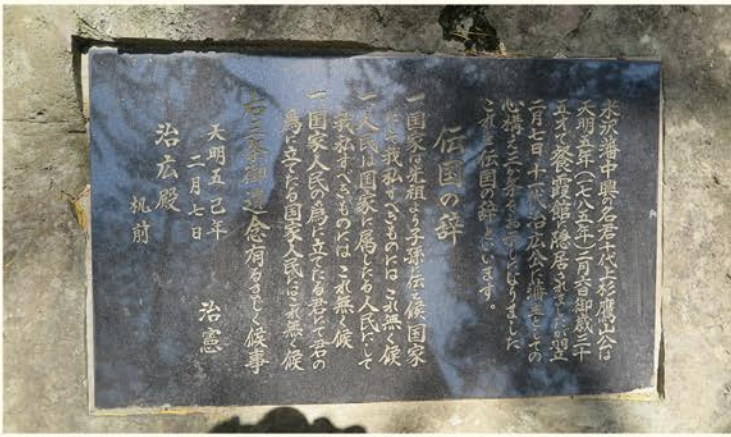 米沢藩中興の名君十代上杉鷹山公は
天明五年(一七八五年)二月六日御歳三十
五才で餐霞館に隠居されましたが翌
二月七日十一代治広公に藩主としての
心構え三か条をお示しになりました
これを伝国の辞といいます。
伝国の辞
一国家は先祖より子孫に伝え候国家
にして我私すべきものにはこれ無く候
一人民は国家に属したる人民にして
我私すべきものにはこれ無く候
一国家人民の為に立てたる君にて君の
為に立てたる国家人民にはこれ無く候
右三条御遺念有るまじく候事
天明五己年
二月七日
治憲
治広殿
机前